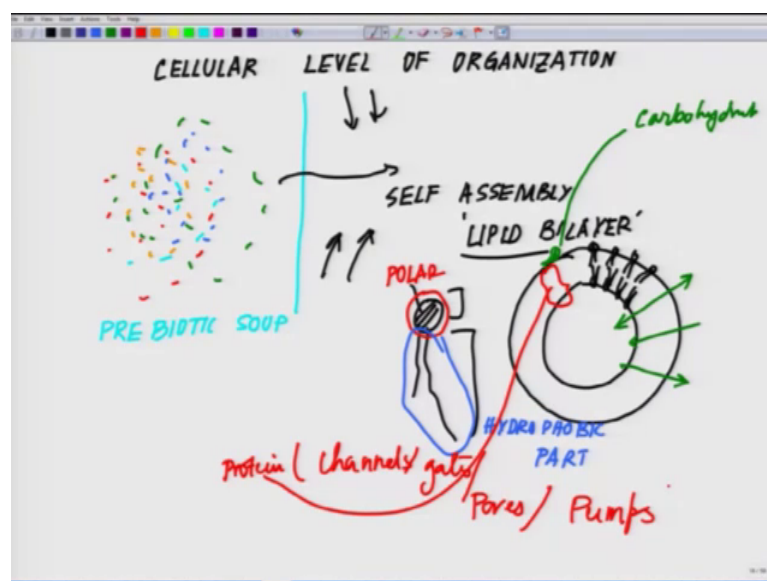 CELLULAR LEVEL OF ORGANIZATION
Carbohydrat
SELF ASSEMBLY
'LIPID BILAYER'
POLAR
PRE BIOTIC SOUP
HYDROPHOBIC
PART
Protein ( Channels/ gates
Pores/ Pumps